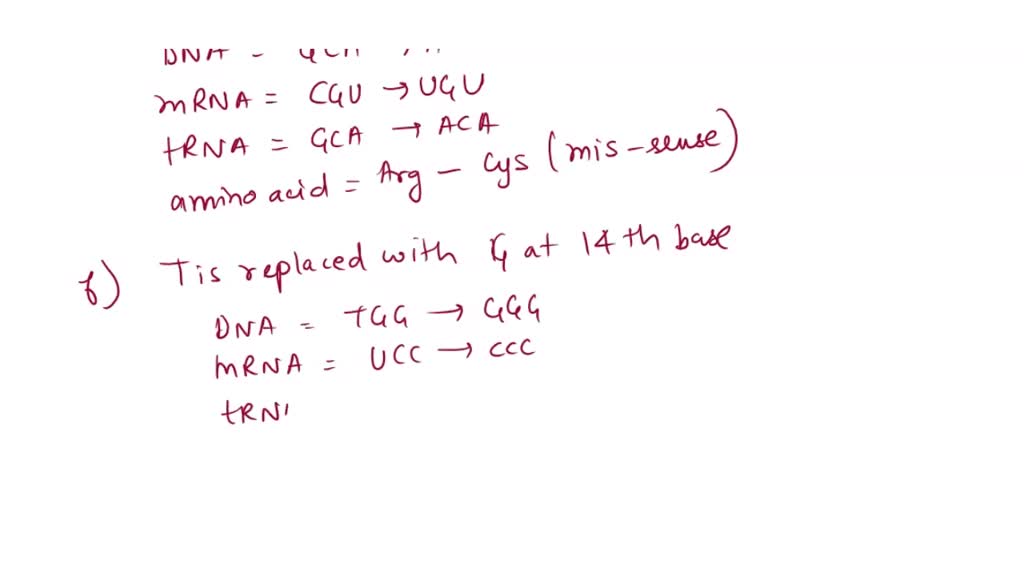 DNA =
mRNA = CGU → UGU
tRNA = GCA → ACA
amino acid = Arg - Cys (mis-sense)
f) T is replaced with G at 14th base
DNA = TGG → GGG
mRNA = UCC → CCC
tRN